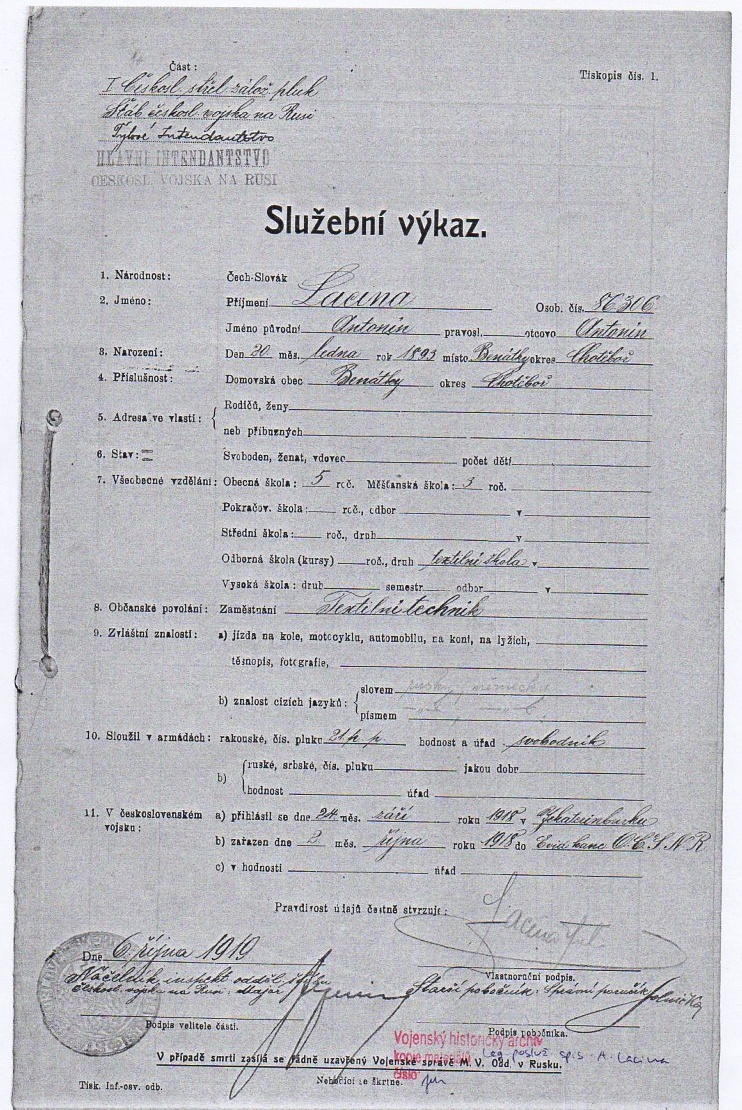 Část:
Tiskopis čís. 1.
I Českosl. střel. zálož. pluk
Štáb českosl. vojska na Rusi
Týlové Intendantstvo
HLAVNÍ INTENDANTSTVO
ČESKOSL. VOJSKA NA RUSI
Služební výkaz.
1. Národnost: Čech-Slovák
2. Jméno: Příjmení Lacina Osob. čís. 86306
Jméno původní Antonín pravosl. otcovo Antonín
3. Narození: Den 20 měs. ledna rok 1893 místo Benátky okres Chotěboř
4. Příslušnost: Domovská obec Benátky okres Chotěboř
5. Adresa ve vlasti: { Rodičů, ženy
neb příbuzných
6. Stav: Svoboden, ženat, vdovec počet dětí
7. Všeobecné vzdělání: Obecná škola: 5 roč. Měšťanská škola: 3 roč.
Pokračov. škola: roč., odbor v
Střední škola: roč., druh v
Odborná škola (kursy) roč., druh textilní škola v
Vysoká škola: druh semestr odbor v
8. Občanské povolání: Zaměstnání Textilní technik
9. Zvláštní znalosti: a) jízda na kole, motocyklu, automobilu, na koni, na lyžích,
těsnopis, fotografie,
b) znalost cizích jazyků: { slovem rusky, německy
písmem
10. Sloužil v armádách: rakouské, čís. pluku 21 p. p. hodnost a úřad svobodník
b) { ruské, srbské, čís. pluku jakou dobr
hodnost úřad
11. V československém vojsku: a) přihlásil se dne 24 měs. září roku 1918 v Jekaterinburku
b) zařazen dne 2 měs. října roku 1918 do Evid. kanc. O.Č.S.N.R.
c) v hodnosti úřad
Pravdivost údajů čestně stvrzuje:
Lacina Ant.
Dne 6. října 1919
Vlastnoruční podpis.
Náčelník inspekt. odděl. štábu
českosl. vojska na Rusi: Major
Starší pobočník: Správní poručík
Podpis velitele části.
Podpis pobočníka.
Vojenský historický archiv
kopie materiálu Leg. posluž. spis A. Lacina
číslo
V případě smrti zasílá se řádně uzavřený Vojenské správě M. V. Odd. v Rusku.
Tisk. Inf.-osv. odb.
Nehodící se škrtne.